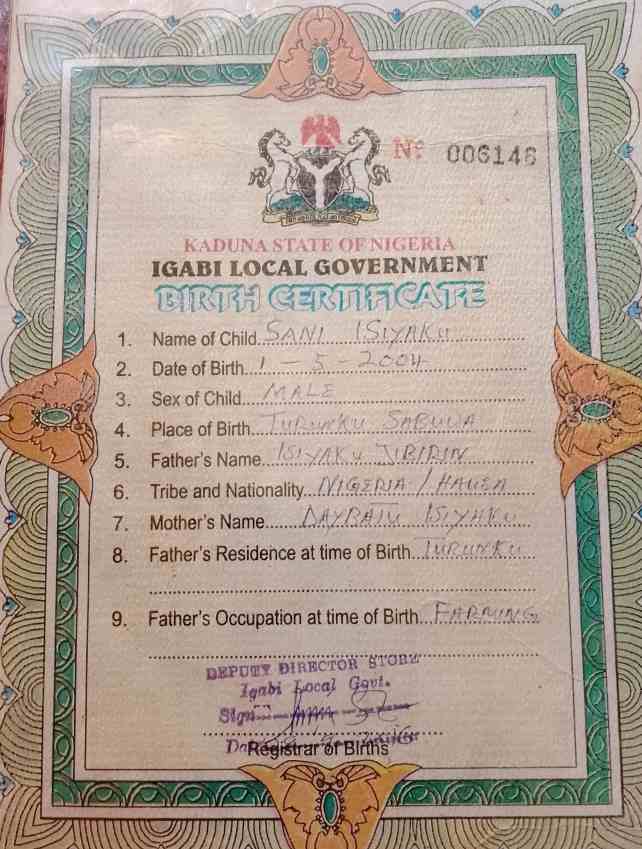 Nº 006146
KADUNA STATE OF NIGERIA
IGABI LOCAL GOVERNMENT
BIRTH CERTIFICATE
1. Name of Child SANI ISIYAKU
2. Date of Birth 1 - 5 - 2004
3. Sex of Child MALE
4. Place of Birth TURUNKU SABUWA
5. Father's Name ISIYAKU JIBIRIN
6. Tribe and Nationality NIGERIA / HAUSA
7. Mother's Name ISIYAKU
8. Father's Residence at time of Birth TURUNKU
9. Father's Occupation at time of Birth FARMING
DEPUTY DIRECTOR STORE
Igabi Local Govt.
Sign
Registrar of Births